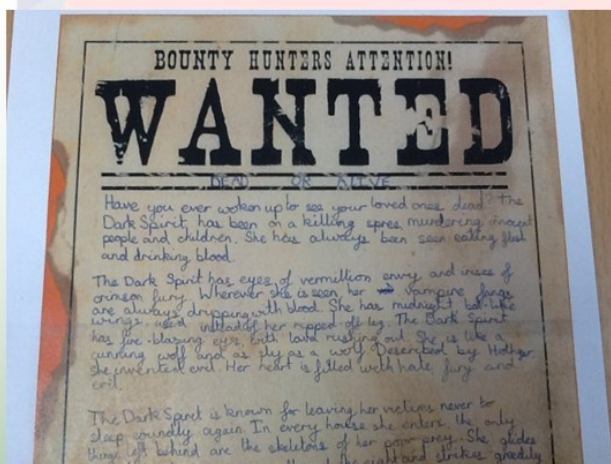 BOUNTY HUNTERS ATTENTION!
WANTED
DEAD OR ALIVE
Have you ever woken up to see your loved ones dead? The
Dark Spirit has been on a killing spree, murdering inocent
people and children. She has always been seen eating flesh
and drinking blood.
The Dark Spirit has eyes of vermillion envy and irises of
crimson fury. Wherever she is seen, her vampire fangs
are always dripping with blood. She has midnight bat-like
wings, used instead of her ripped off leg. The Dark Spirit
has fire-blazing eyes, with lava rushing out. She is like a
cunning wolf and as sly as a
she invented evil. Her heart is filled with hate, fury and
evil.
The Dark Spirit is known for leaving her victims never to
sleep soundly again. In every house she enters, the only
things left behind are the skeletons of her poor prey. She glides
the night and strikes greedily